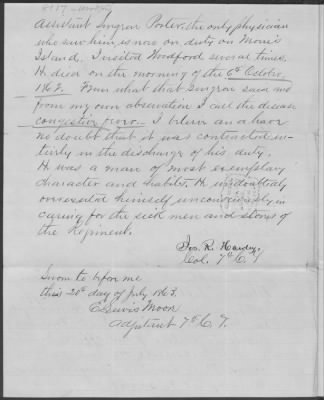 Assistant Surgeon Porter, the only physician
who saw him is now on duty on Morris
Island. I visited Woodford several times.
He died on the morning of the 6th October
1862. From what that Surgeon said and
from my own observation I call the disease
congestive fever. I believe and have
no doubt that it was contracted en-
tirely in the discharge of his duty.
He was a man of most exemplary
character and habits. He undoubtedly
overexerted himself unconsciously in
caring for the sick men and stores of
the Regiment.
Jos. R. Hawley,
Col. 7th C. V.
Sworn to before me
this 20th day of July 1863.
E Lewis Moore
Adjutant 7th C. V.